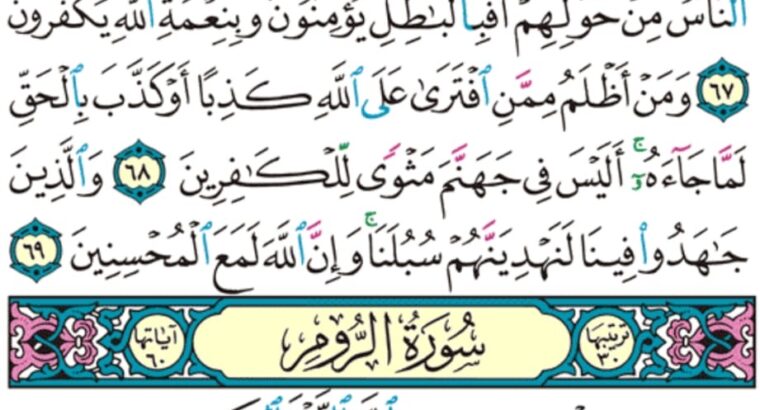 ٱلنَّاسُ مِنْ حَوْلِهِمْ أَفَبِٱلْبَٰطِلِ يُؤْمِنُونَ وَبِنِعْمَةِ ٱللَّهِ يَكْفُرُونَ
٦٧ وَمَنْ أَظْلَمُ مِمَّنِ ٱفْتَرَىٰ عَلَى ٱللَّهِ كَذِبًا أَوْ كَذَّبَ بِٱلْحَقِّ
لَمَّا جَآءَهُۥٓ ۚ أَلَيْسَ فِى جَهَنَّمَ مَثْوًى لِّلْكَٰفِرِينَ ٦٨ وَٱلَّذِينَ
جَٰهَدُوا۟ فِينَا لَنَهْدِيَنَّهُمْ سُبُلَنَا ۚ وَإِنَّ ٱللَّهَ لَمَعَ ٱلْمُحْسِنِينَ ٦٩
ترتيبها ٣٠ سُورَةُ الرُّومِ آياتها ٦٠